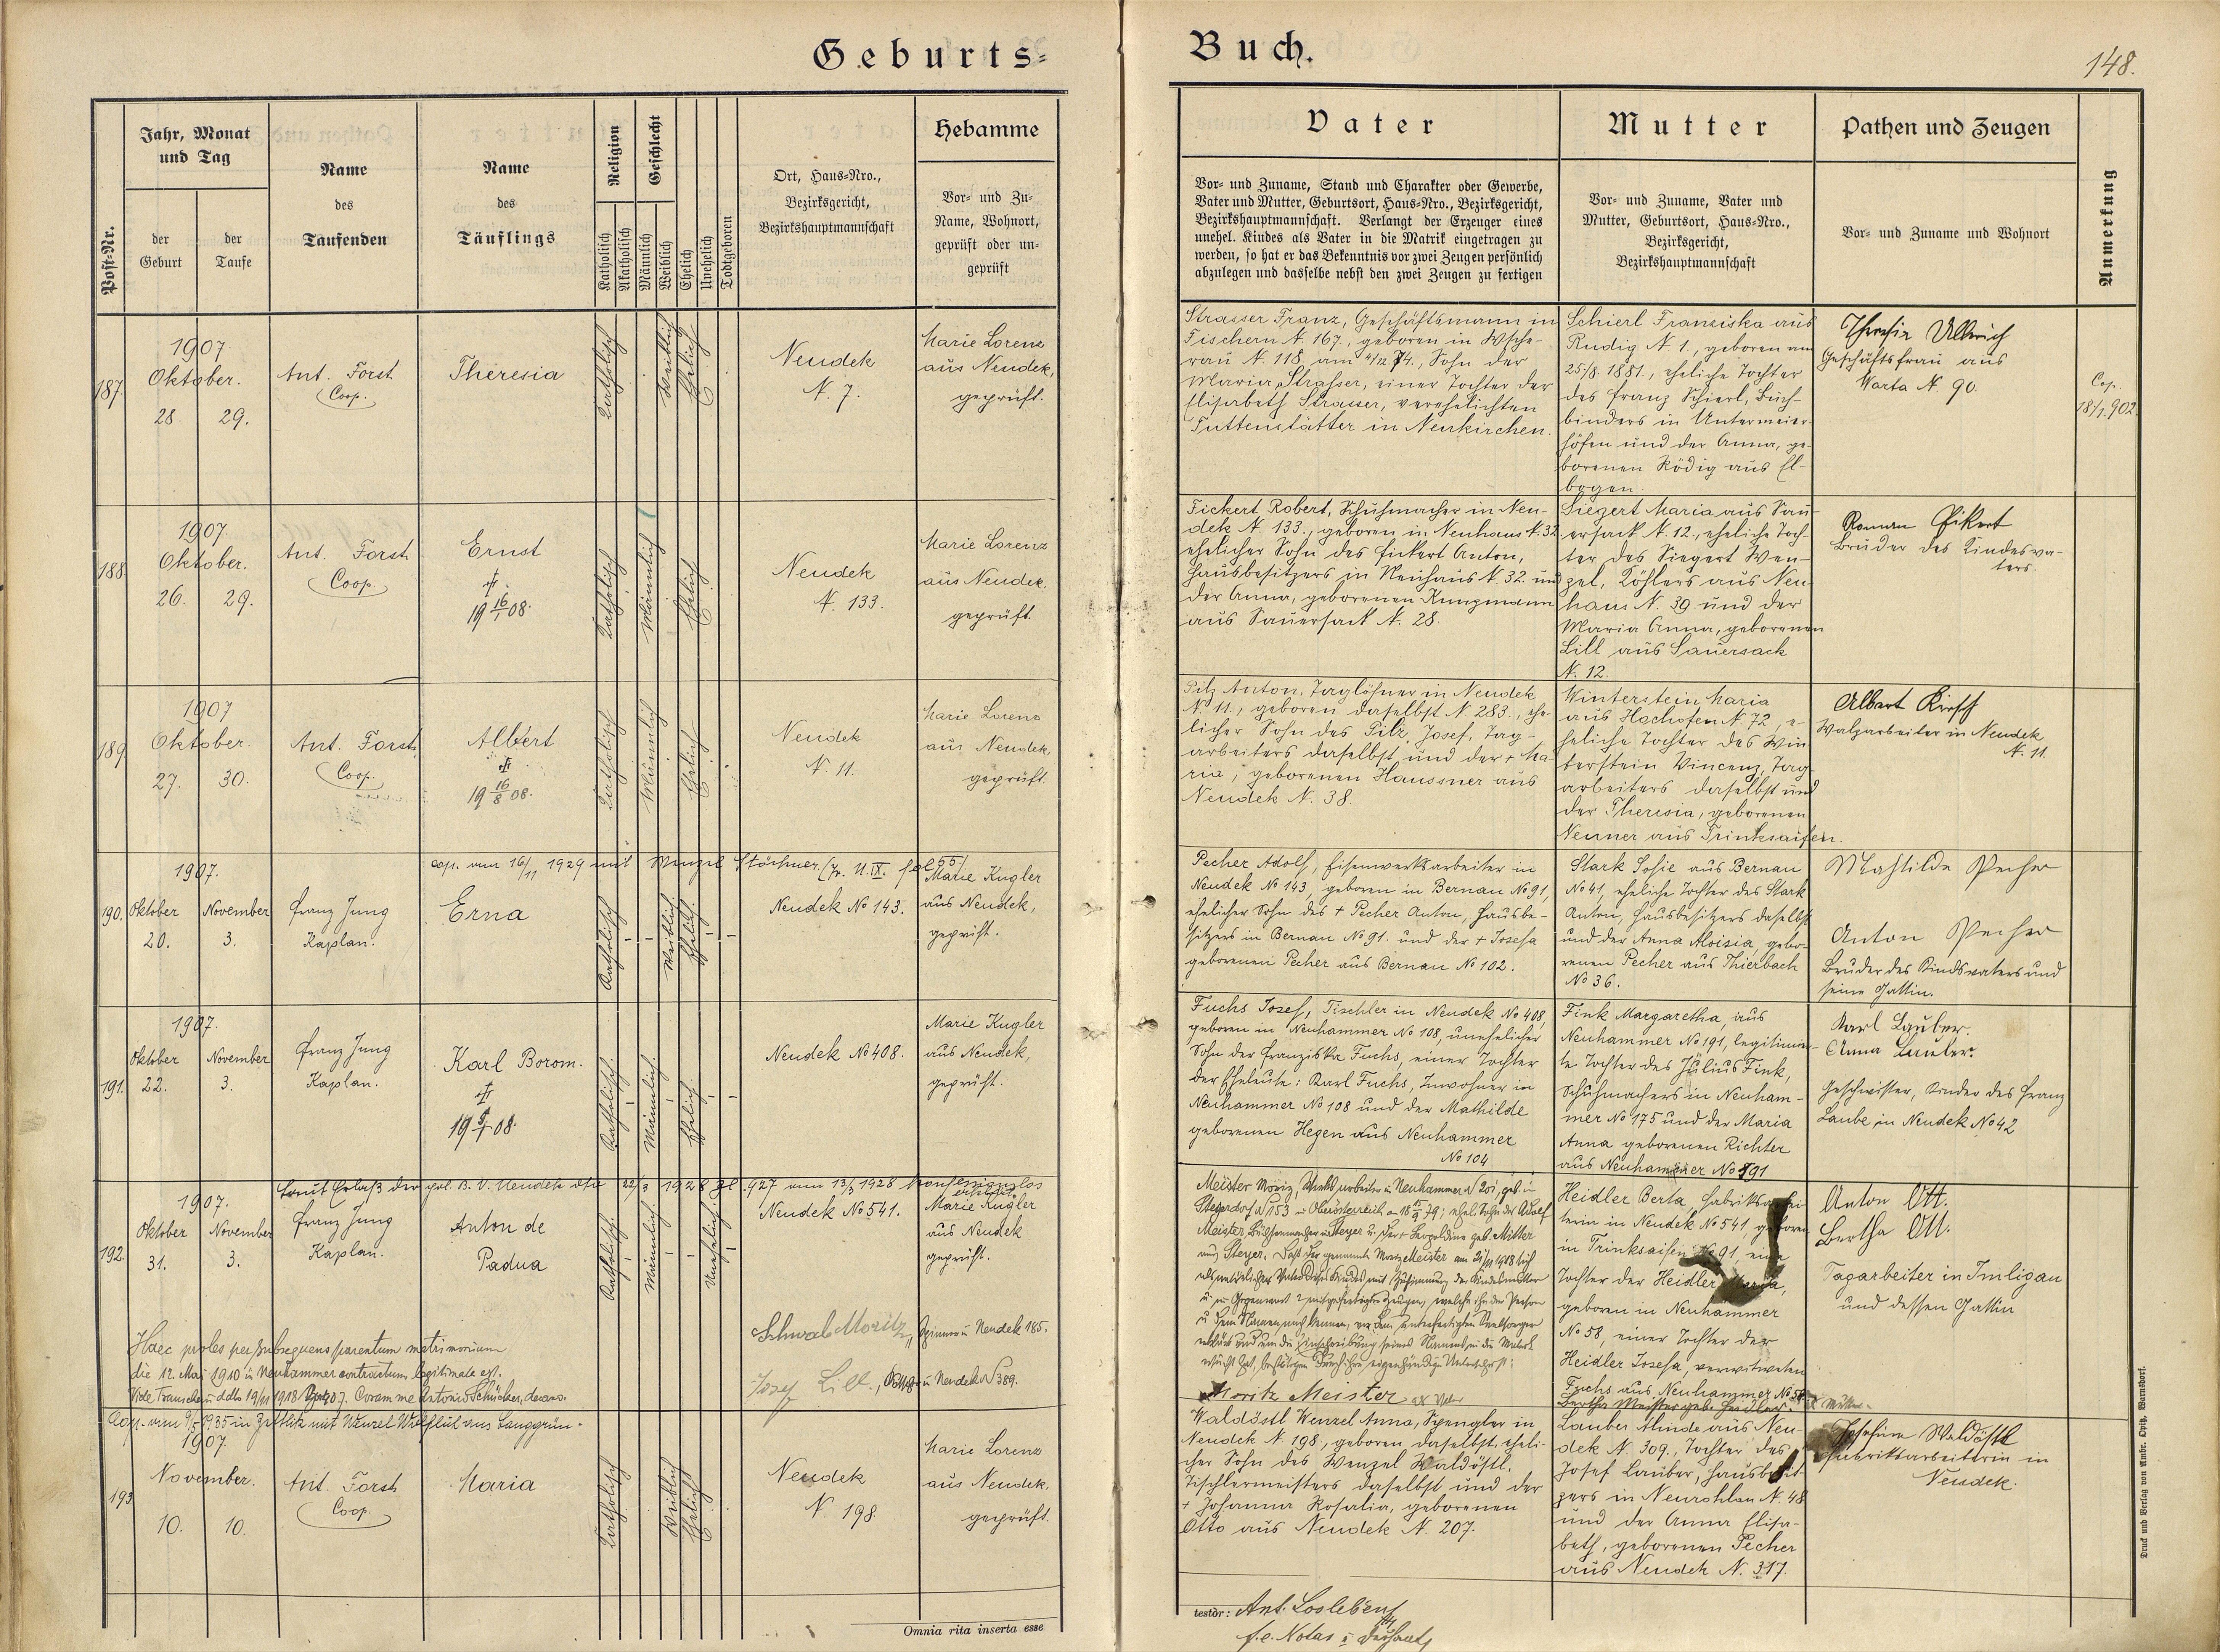 Geburts-
Buch.
148.
Post-Nr.
Jahr, Monat
und Tag
der
Geburt
der
Taufe
Name
des
Taufenden
Name
des
Täuflings
Religion
Katholisch
Akatholisch
Geschlecht
Männlich
Weiblich
Ehelich
Unehelich
Todtgeboren
Ort, Haus-Nro.,
Bezirksgericht,
Bezirkshauptmannschaft
Hebamme
Vor- und Zu-
Name, Wohnort,
geprüft oder un-
geprüft
Vater
Vor- und Zuname, Stand und Charakter oder Gewerbe,
Vater und Mutter, Geburtsort, Haus-Nro., Bezirksgericht,
Bezirkshauptmannschaft. Verlangt der Erzeuger eines
unehel. Kindes als Vater in die Matrik eingetragen zu
werden, so hat er das Bekenntnis vor zwei Zeugen persönlich
abzulegen und dasselbe nebst den zwei Zeugen zu fertigen
Mutter
Vor- und Zuname, Vater und
Mutter, Geburtsort, Haus-Nro.,
Bezirksgericht,
Bezirkshauptmannschaft
Pathen und Zeugen
Vor- und Zuname und Wohnort
Anmerkung
187.
1907.
Oktober.
28. 29.
Ant. Forst
Coop.
Theresia
Katholisch
Weiblich
Ehelich
Neudek
N. 7.
Marie Lorenz
aus Neudek,
geprüft.
Strasser Franz, Geschäftsmann in
Fischern N. 167., geboren in Wsche-
rau N. 118. am 4/12.74., Sohn der
Maria Strasser, einer Tochter der
Elisabeth Strasser, verehelichten
Tuttenstätter in Neukirchen.
Schierl Franziska aus
Rudig N. 1., geboren am
25/8. 1881., eheliche Tochter
des Franz Schierl, Buch-
binders in Untermeier-
höfen und der Anna, ge-
borenen Rödig aus El-
bogen.
Theresia Ullrich
Geschäftsfrau aus
Warta N. 90.
Cop.
18/1.902.
188.
1907.
Oktober.
26. 29.
Ant. Forst
Coop.
Ernst
†
19 16/1 08.
Katholisch
Männlich
Ehelich
Neudek
N. 133.
Marie Lorenz
aus Neudek,
geprüft.
Fickert Robert, Schuhmacher in Neu-
dek N. 133., geboren in Neuhaus N. 32
ehelicher Sohn des Fickert Anton,
Hausbesitzers in Neuhaus N. 32. und
der Anna, geborenen Kunzmann
aus Sauersack N. 28.
Siegert Maria aus Sau-
ersack N. 12., eheliche Toch-
ter des Siegert Wen-
zel, Köhlers aus Neu-
haus N. 39. und der
Maria Anna, geborenen
Lill aus Sauersack
N. 12.
Roman Fikert
Bruder des Kindesva-
ters.
189.
1907
Oktober.
27. 30.
Ant. Forst
Coop.
Albert
†
19 16/8 08.
Katholisch
Männlich
Ehelich
Neudek
N. 11.
Marie Lorenz
aus Neudek,
geprüft.
Pilz Anton, Taglöhner in Neudek
N. 11., geboren daselbst N. 283., ehe-
licher Sohn des Pilz Josef, Tag-
arbeiters daselbst und der + Ma-
ria, geborenen Haussner aus
Neudek N. 38.
Winterstein Maria
aus Hochofen N. 72., e-
heliche Tochter des Win-
terstein Vincenz, Tag-
arbeiters daselbst und
der Theresia, geborenen
Neuner aus Trinksaifen.
Albert Kirsch
Walzarbeiter in Neudek
N. 11.
cop. am 16/11 1929 mit Wenzel
190.
1907.
Oktober November
20. 3.
Franz Jung
Kaplan.
Erna
Katholisch
Weiblich
Ehelich
Neudek No 143.
Marie Kugler
aus Neudek,
geprüft.
Pecher Adolf, Eisenwerksarbeiter in
Neudek No 143, geboren in Bernau No 91,
ehelicher Sohn des + Pecher Anton, Hausbe-
sitzers in Bernau No 91. und der + Josefa
geborenen Pecher aus Bernau No 102.
Stark Sofie aus Bernau
No 41, eheliche Tochter des Stark
Anton, Hausbesitzers daselbst
und der Anna Aloisia, gebo-
renen Pecher aus Thierbach
No 36.
Mathilde Pecher
Anton Pecher
Bruder des Kindsvaters und
seine Gattin.
191.
1907.
Oktober November
22. 3.
Franz Jung
Kaplan.
Karl Borom.
†
Katholisch
Männlich
Ehelich
Neudek No 408.
Marie Kugler
aus Neudek,
geprüft.
Fuchs Josef, Tischler in Neudek No 408,
geboren in Neuhammer No 108, unehelicher
Sohn der Franziska Fuchs, einer Tochter
der Eheleute: Karl Fuchs, Inwohner in
Neuhammer No 108 und der Mathilde
geborenen Hegen aus Neuhammer
No 104
Fink Margaretha, aus
Neuhammer No 191, legitimir-
te Tochter des Julius Fink,
Schuhmachers in Neuham-
mer No 175 und der Maria
Anna geborenen Richter
aus Neuhammer No 191
Karl Lauber.
Anna Lauber.
Geschwister, Kinder des Franz
Laube in Neudek No 42
192.
1907.
Oktober November
31. 3.
Franz Jung
Kaplan.
Anton de
Padua
Katholisch
Männlich
Unehelich
Neudek No 541.
Marie Kugler
aus Neudek
geprüft.
Haec proles per subsequens parentum matrimonium
die 12. Mai 1910 in Neuhammer contractum legitimata est.
Schwab Moritz, in Neudek 185.
Josef Lill., in Neudek N 389.
Moritz Meister
Heidler Berta, Fabriksarbei-
terin in Neudek No 541, geboren
in Trinksaifen No 91, eine
Tochter der Heidler Maria,
geboren in Neuhammer
No 58, einer Tochter der
Heidler Josefa, verwitweten
Fuchs aus Neuhammer No 58
Bertha Meister geb. Heidler.
Anton Ott.
Bertha Ott.
Tagarbeiter in Imligau
und dessen Gattin
193.
1907.
November.
10. 10.
Ant. Forst
Coop.
Maria
Katholisch
Weiblich
Ehelich
Neudek
N. 198.
Marie Lorenz
aus Neudek,
geprüft.
Waldöstl Wenzel Anna, Spengler in
Neudek N. 198., geboren daselbst, eheli-
cher Sohn des Wenzel Waldöstl,
Tischlermeisters daselbst und der
+ Johanna Rosalia, geborenen
Otto aus Neudek N. 207.
Lauber Alinde aus Neu-
dek N. 309., Tochter des
Josef Lauber, Hausbesit-
zers in Neurohlau N. 48
und der Anna Elisa-
beth, geborenen Pecher
aus Neudek N. 317.
Josefine Waldöstl
Fabriksarbeiterin in
Neudek.
Omnia rita inserta esse
testor:
Druck und Verlag von Ambr. Opitz, Warnsdorf.